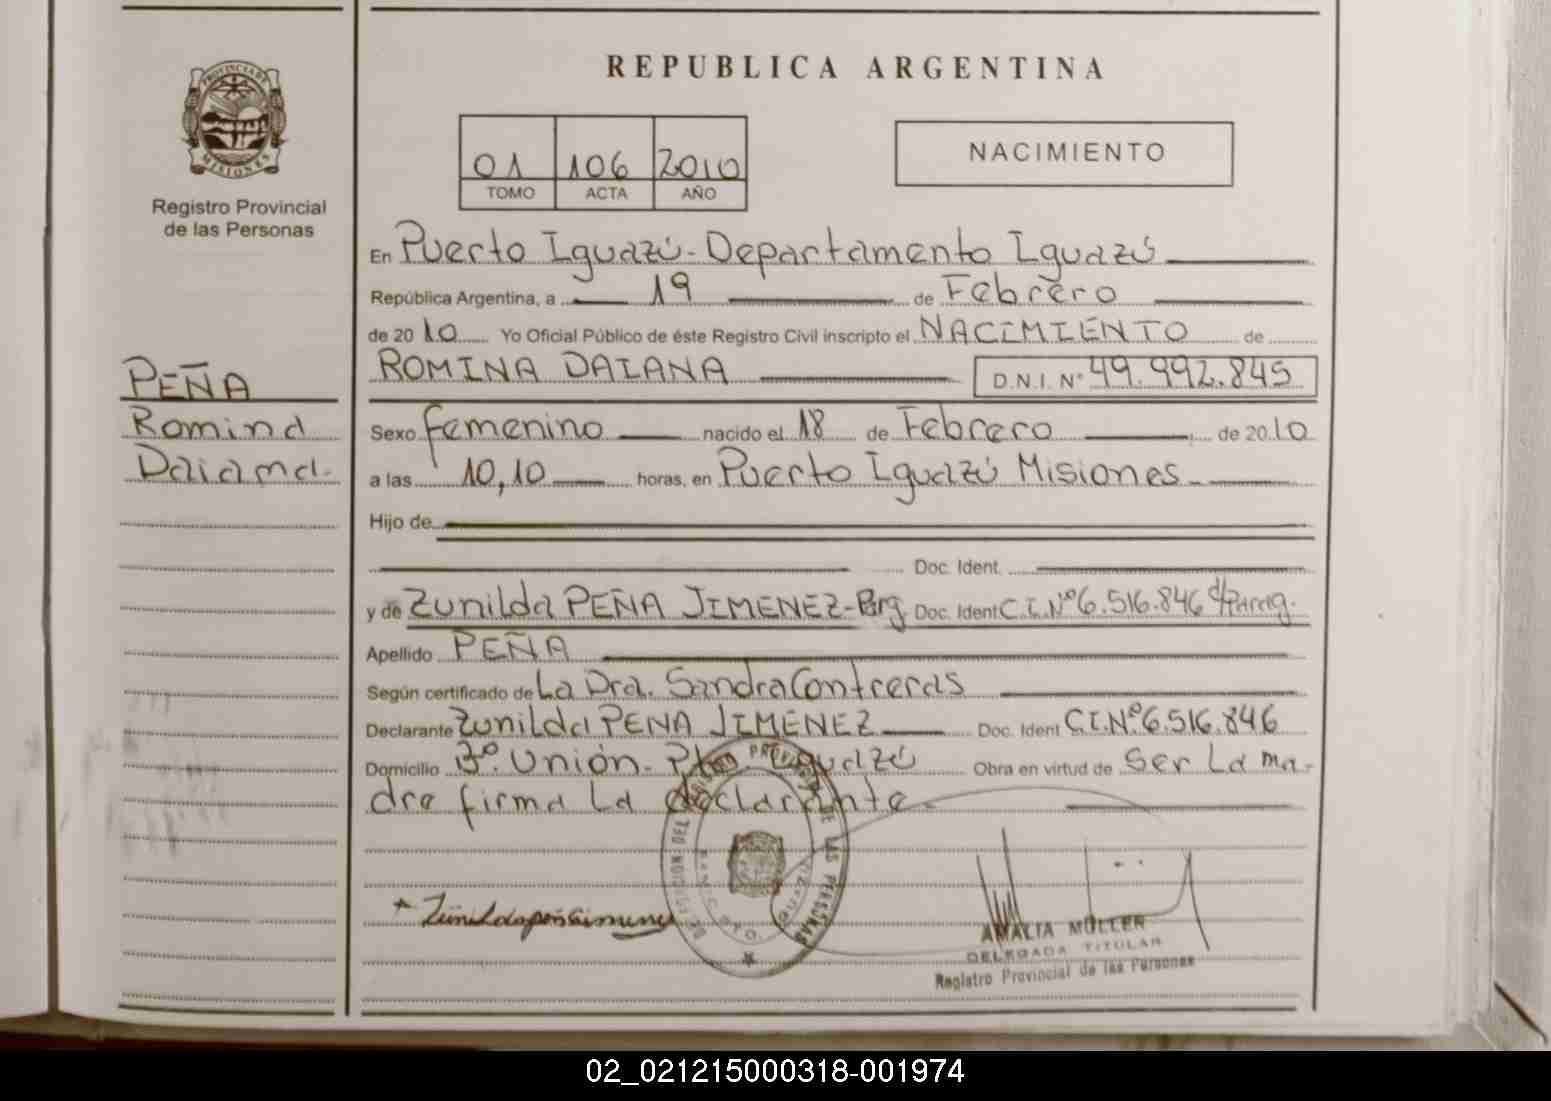 REPUBLICA ARGENTINA
PROVINCIA DE
MISIONES
Registro Provincial
de las Personas
01 106 2010
TOMO ACTA AÑO
NACIMIENTO
En Puerto Iguazú - Departamento Iguazú
República Argentina, a 19 de Febrero
de 2010 Yo Oficial Público de éste Registro Civil inscripto el NACIMIENTO de
ROMINA DAIANA D.N.I. Nº 49.992.845
PEÑA
Romina
Daiana.
Sexo femenino nacido el 18 de Febrero de 2010
a las 10,10 horas, en Puerto Iguazú Misiones
Hijo de
Doc. Ident.
y de Zunilda PEÑA JIMENEZ - Parg. Doc. Ident C.I.Nº6.516.846 d/Parag.
Apellido PEÑA
Según certificado de La Dra. Sandra Contreras
Declarante Zunilda PEÑA JIMENEZ Doc. Ident C.I.Nº6.516.846
Domicilio Bº. Unión - Pto. Iguazú Obra en virtud de Ser La ma-
dre firma La declarante.
PROVINCIAL DE LAS PERSONAS
AMALIA MÜLLER
DELEGADA TITULAR
Registro Provincial de las Personas
02_021215000318-001974